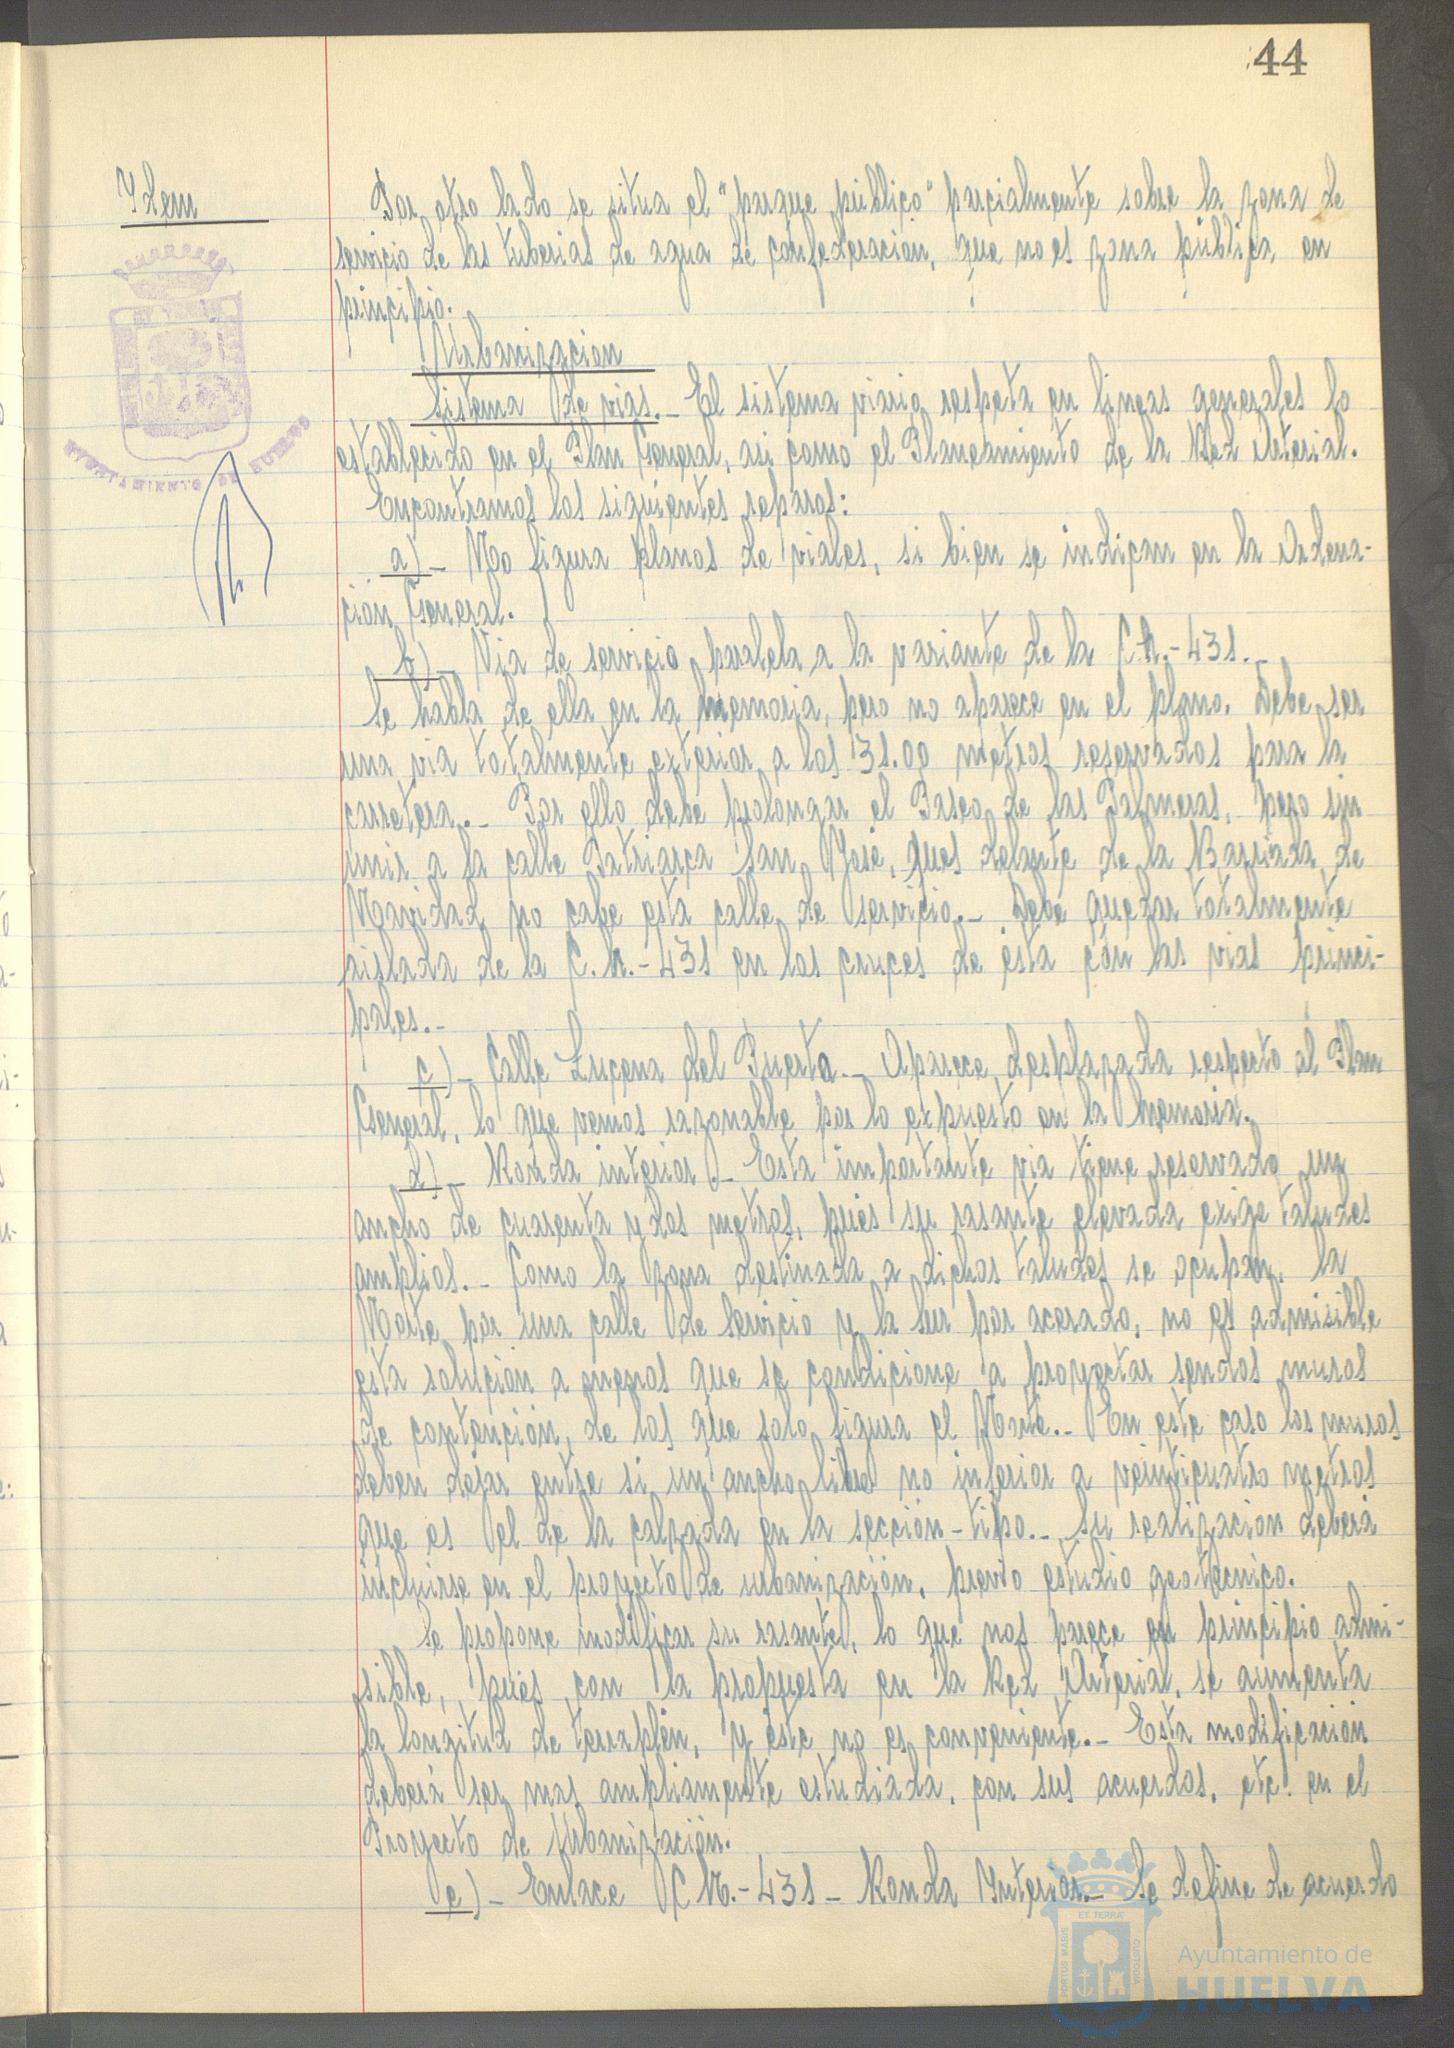 44
Ydem
Por otro lado se situa el "parque público" parcialmente sobre la zona de
servicio de las tuberias de agua de confederacion, que no es zona pública, en
principio.
Urbanizacion
Sistema de vias.- El sistema viario respeta en lineas generales lo
establecido en el Plan General, asi como el Planeamiento de la Red Arterial.
Encontramos los siguientes reparos:
a)- No figura planos de viales, si bien se indican en la Ordena-
ción General.
b)- Via de servicio paralela a la variante de la C.N.-431.-
Se habla de ella en la Memoria, pero no aparece en el plano. Debe ser
una via totalmente exterior a los 31.00 metros reservados para la
carretera.- Por ello debe prolongar el Paseo de las Palmeras, pero sin
unir a la calle Patriarca San José, pues delante de la Barriada de
Navidad no cabe esta calle de servicio.- Debe quedar totalmente
aislada de la C.N.-431 en los cruces de ésta con las vias princi-
pales.-
c)- Calle Lucena del Puerto.- Aparece desplazada respecto al Plan
General, lo que vemos razonable por lo expuesto en la Memoria.
d)- Ronda interior.- Esta importante via tiene reservado un
ancho de cuarenta y dos metros, pues su rasante elevada exige taludes
amplios.- Como la zona destinada a dichos taludes se ocupan, la
Norte por una calle de servicio y la Sur por acerado, no es admisible
esta solución a menos que se condicione a proyectar sendos muros
de contención, de los que solo figura el Norte.- En este caso los muros
deben dejar entre si un ancho libre no inferior a veinticuatro metros
que es el de la calzada en la sección-tipo.- Su realización deberá
incluirse en el proyecto de urbanización, previo estudio geotécnico.
Se propone modificar su rasante, lo que nos parece en principio admi-
sible, pues con la propuesta en la Red Arterial, se aumenta
la longitud de terraplén, y éste no es conveniente.- Esta modificación
deberá ser mas ampliamente estudiada, con sus acuerdos, etc. en el
Proyecto de Urbanización.
e)- Enlace C.N.-431- Ronda Interior.- Se define de acuerdo
AYUNTAMIENTO DE
PORTUS MARIS ET TERRAE CUSTODIA
Ayuntamiento de
HUELVA